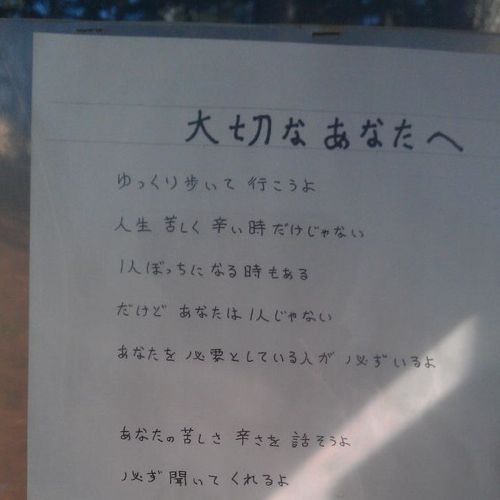 大切なあなたへ
ゆっくり歩いて 行こうよ
人生 苦しく 辛い時だけじゃない
1人ぼっちになる時もある
だけど あなたは1人じゃない
あなたを必要としている人が必ずいるよ
あなたの苦しさ 辛さを話そうよ
必ず聞いてくれるよ